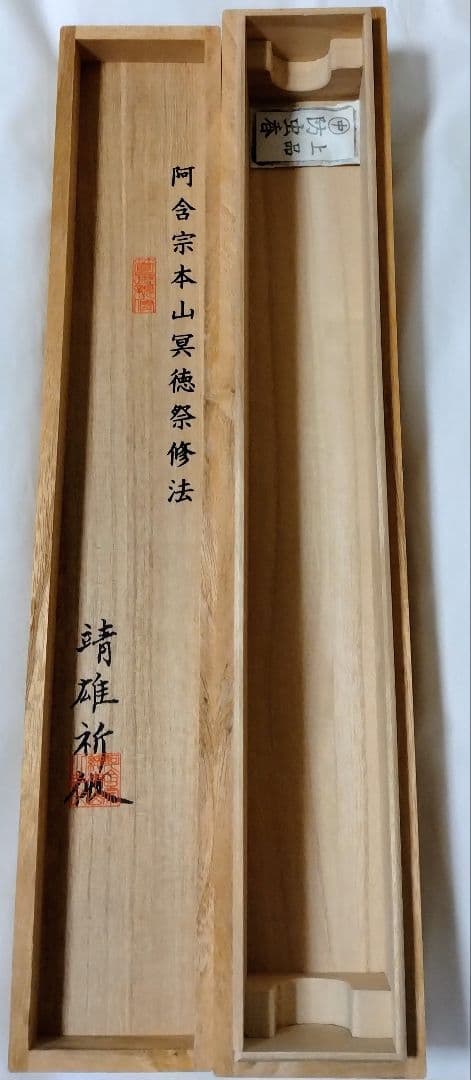 阿含宗本山冥徳祭修法
靖雄祈
上品
㊥防虫香